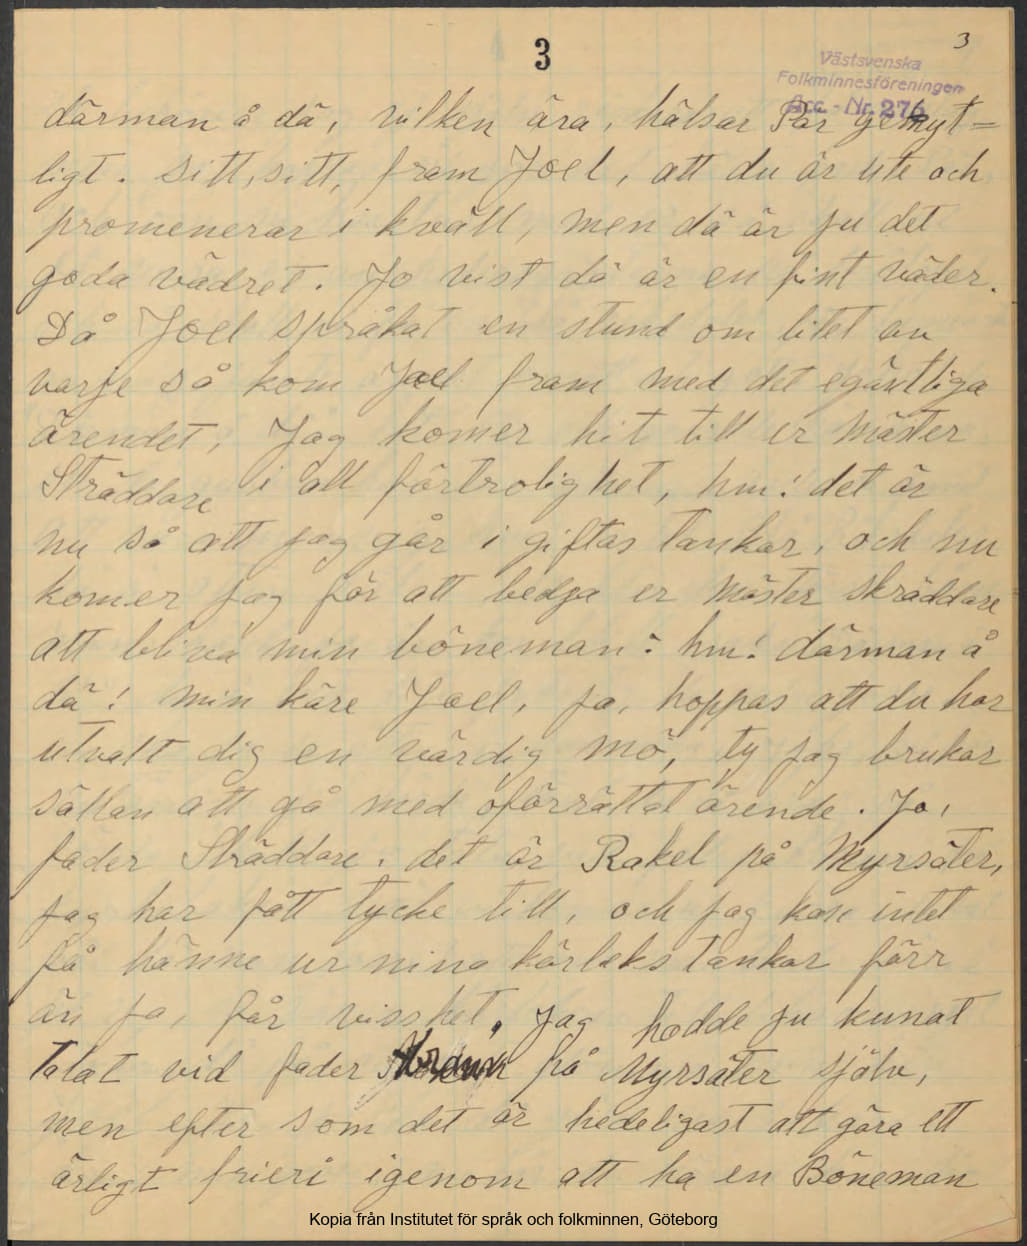 3
3
Västsvenska
Folkminnesföreningen
Acc.-Nr. 276
därman å dä, vilken ära, hälsar Pär gemyt=
ligt. sitt, sitt, fram Joel, att du är ute och
promenerar i kväll, men dä är ju det
goda vädret. Jo vist dä är en fint väder.
Då Joel språkat en stund om litet av
varje så kom Joel fram med det egäntliga
ärendet, Jag komer hit till er mäster
Skräddare i all förtrolighet, hm! det är
nu så att jag går i giftas tankar, och nu
komer jag för att bedja er mäster skräddare
att bliva min böneman: hm! därman å
dä! min käre Joel, ja, hoppas att du har
utvalt dig en värdig mö, ty jag brukar
sällan att gå med oförrättat ärende. Jo,
fader Skräddare, det är Rakel på Myrsäter,
jag har fått tycke till, och jag kan intet
få hänne ur mina kärleks tankar förr
än ja, får visshet. Jag hadde ju kunat
talat vid fader på Myrsäter själv,
men efter som det är hedeligast att göra ett
ärligt frieri igenom att ha en Böneman
Kopia från Institutet för språk och folkminnen, Göteborg